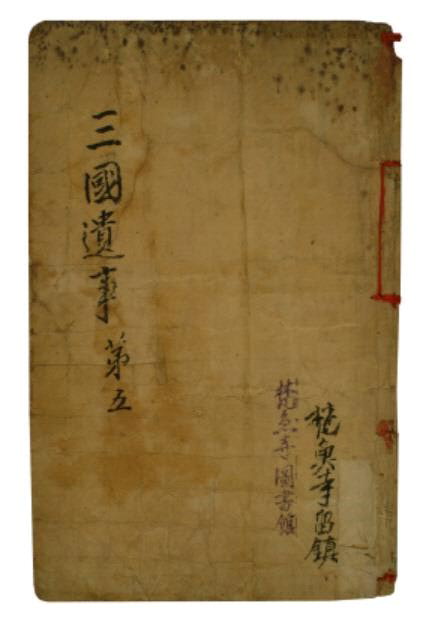 三國遺事 第五
梵魚寺留鎭
梵魚寺圖書鎭